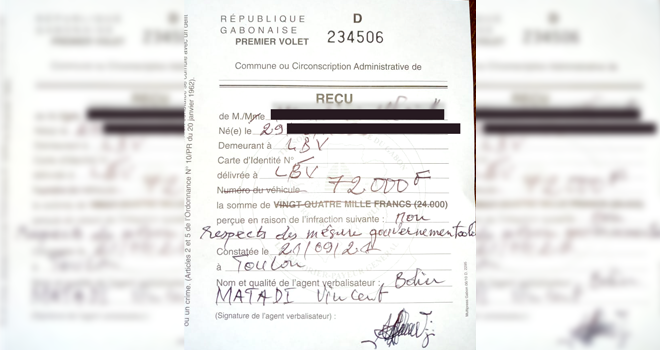 RÉPUBLIQUE
GABONAISE
PREMIER VOLET
D
234506
Commune ou Circonscription Administrative de
REÇU
de M./Mme
Né(e) le 29
Demeurant à LBV
Carte d'Identité N°
délivrée à LBV
Numéro du véhicule 72000 F
la somme de VINGT-QUATRE MILLE FRANCS (24.000)
perçue en raison de l'infraction suivante : Non
respects des mésure gouvernementale
Constatée le 21/09/21
à Toulon
Nom et qualité de l'agent verbalisateur :
MATADI Vincent
(Signature de l'agent verbalisateur) :
ou un crime. (Articles 2 et 5 de l'Ordonnance N° 10/PR du 20 janvier 1962).